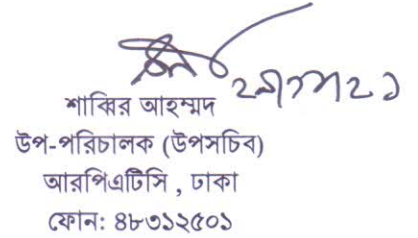 শাব্বির আহম্মদ
উপ-পরিচালক (উপসচিব)
আরপিএটিসি , ঢাকা
ফোন: ৪৮৩১২৫০১